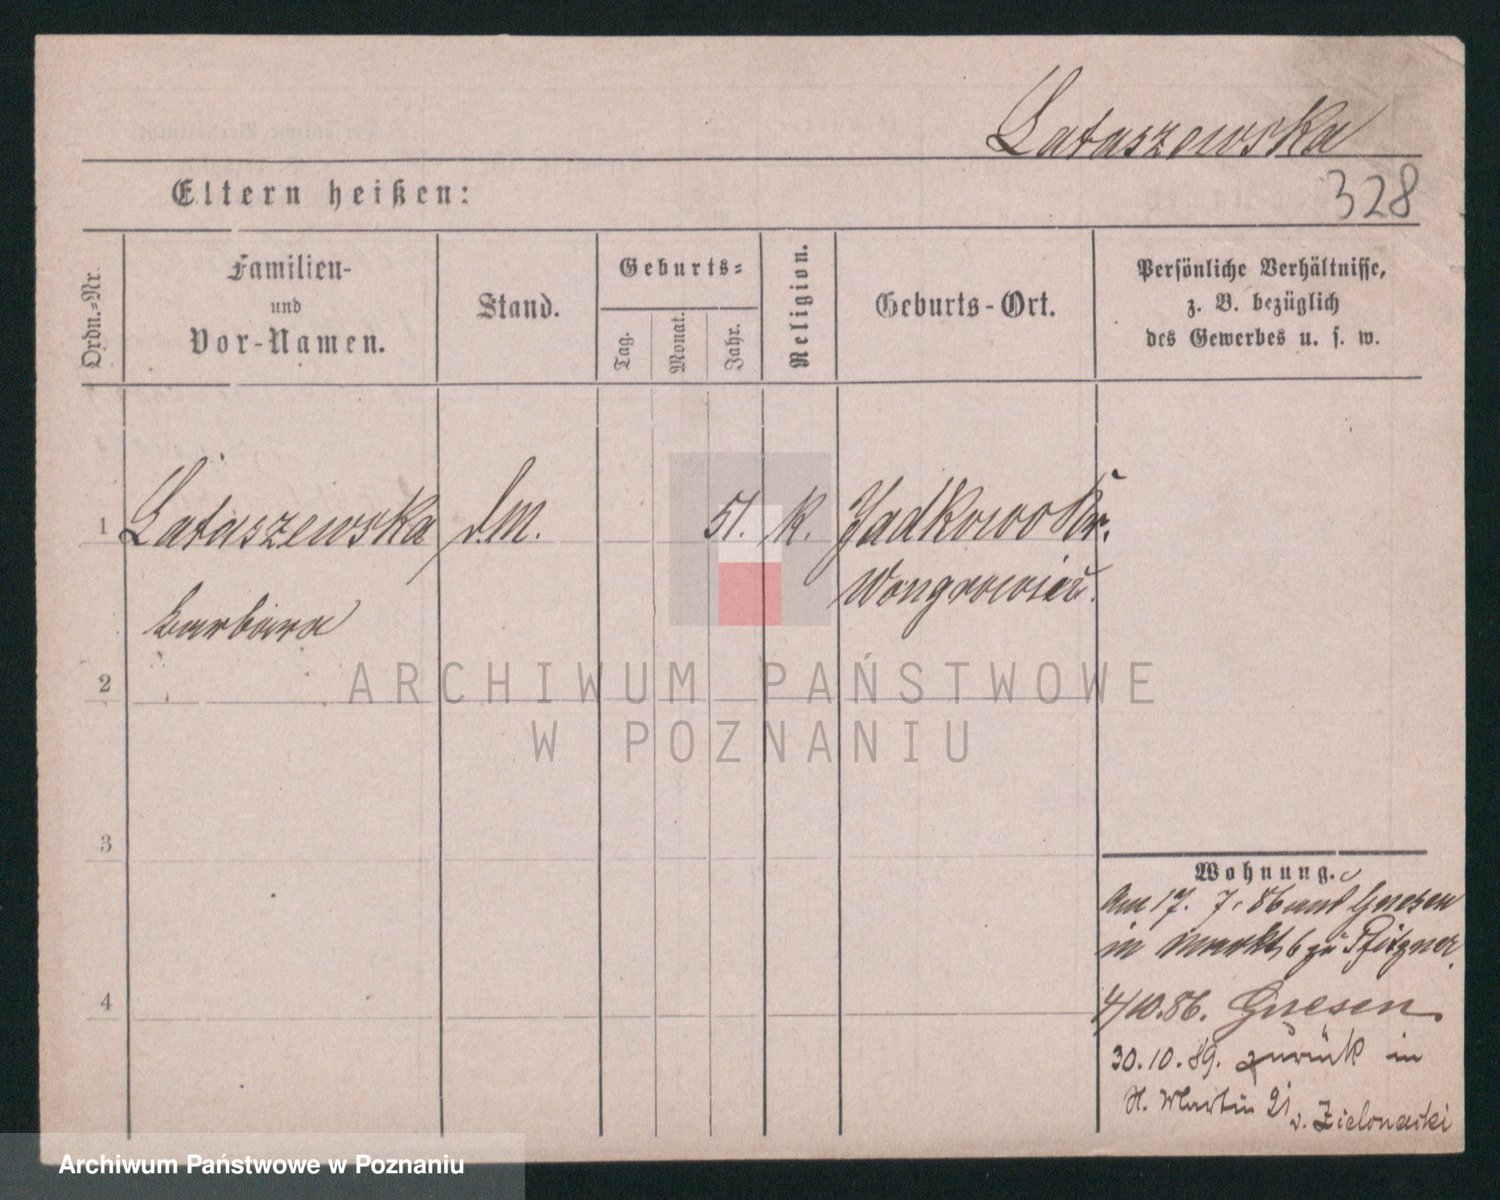 Lataszewska
Eltern heißen:
328
Ordn.-Nr.
Familien-
und
Vor-Namen.
Stand.
Geburts-
Tag.
Monat.
Jahr.
Religion.
Geburts-Ort.
Persönliche Verhältnisse,
z. B. bezüglich
des Gewerbes u. s. w.
1
Lataszewska
d.M.
51.
k.
Jadkowo Kr.
Wongrowiec.
barbara
2
ARCHIWUM PAŃSTWOWE
W POZNANIU
3
Wohnung.
Am 17. 7. 86 aus Gnesen
in Markt 6 zu Pfitzner
4
4/10.86. Gnesen
30.10.89. zurück in
St. Martin 21
v. Zielonacki
Archiwum Państwowe w Poznaniu